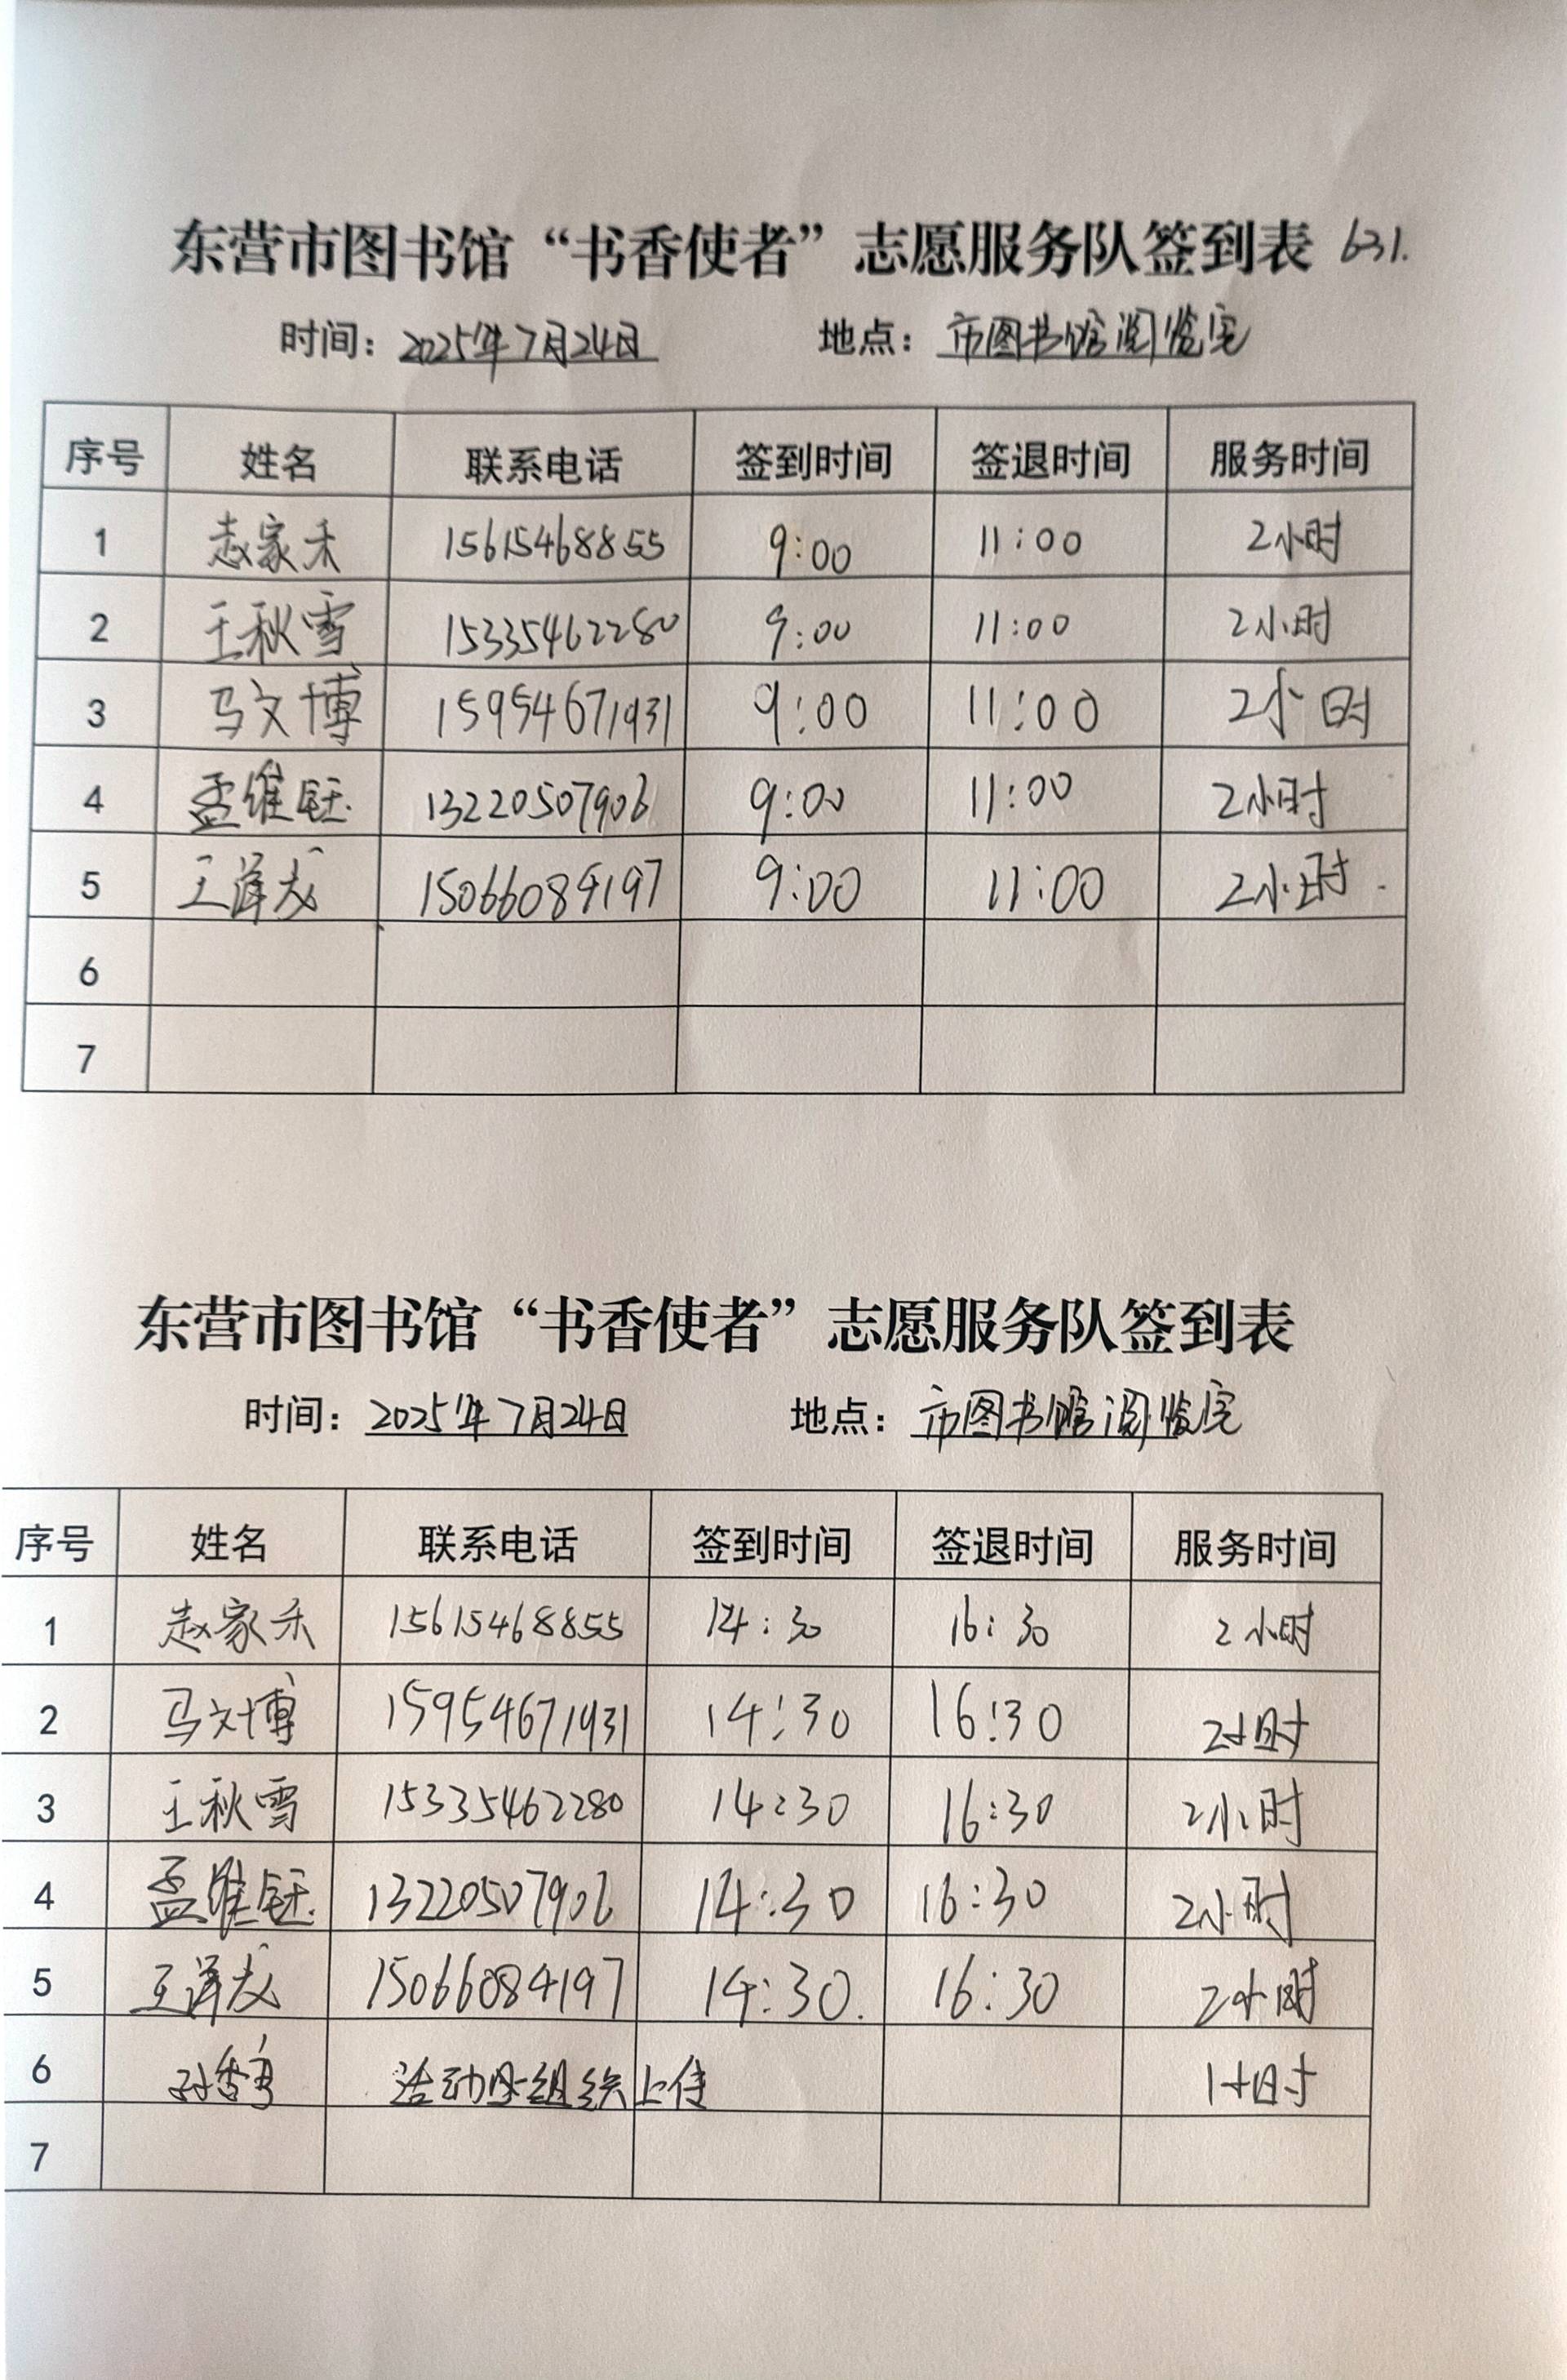 东营市图书馆“书香使者”志愿服务队签到表 631.
时间：2025年7月24日 地点：市图书馆阅览室
序号 姓名 联系电话 签到时间 签退时间 服务时间
1 赵家禾 15615468855 9:00 11:00 2小时
2 王秋雪 15335462280 9:00 11:00 2小时
3 马文博 15954671931 9:00 11:00 2小时
4 孟维钰 13220507906 9:00 11:00 2小时
5 王泽龙 15066084197 9:00 11:00 2小时
6
7
东营市图书馆“书香使者”志愿服务队签到表
时间：2025年7月24日 地点：市图书馆阅览室
序号 姓名 联系电话 签到时间 签退时间 服务时间
1 赵家禾 15615468855 14:30 16:30 2小时
2 马文博 15954671931 14:30 16:30 2小时
3 王秋雪 15335462280 14:30 16:30 2小时
4 孟维钰 13220507906 14:30 16:30 2小时
5 王泽龙 15066084197 14:30 16:30 2小时
6 活动组织上传 1小时
7